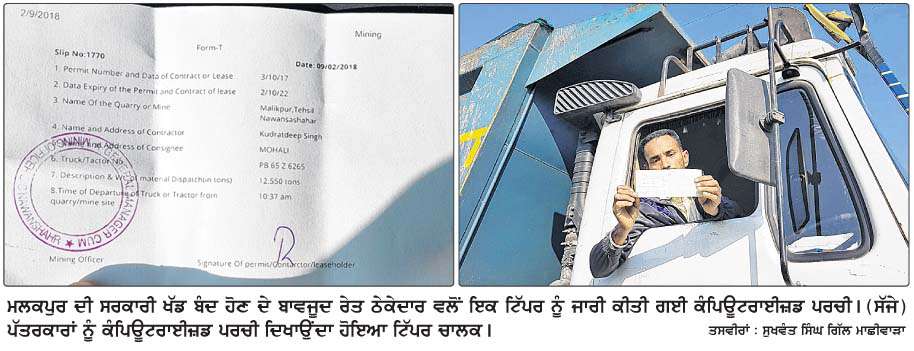 2/9/2018
Mining
Form-T
Slip No:1770
Date: 09/02/2018
1. Permit Number and Data of Contract or Lease 3/10/17
2. Data Expiry of the Permit and Contract of lease 2/10/22
3. Name Of the Quarry or Mine Malikpur,Tehsil
Nawansashahar
4. Name and Address of Contractor Kudratdeep Singh
and Address of Consignee MOHALI
6. Truck/Tactor No PB 65 Z 6265
7. Description & material Dispatchin tons) 12.550 tons
8.Time of Departure of Truck or Tractor from 10:37 am
quarry/mine site
Mining Officer
Signature Of permit/Contarctor/leaseholder
ਮਲਕਪੁਰ ਦੀ ਸਰਕਾਰੀ ਖੱਡ ਬੰਦ ਹੋਣ ਦੇ ਬਾਵਜੂਦ ਰੇਤ ਠੇਕੇਦਾਰ ਵਲੋਂ ਇਕ ਟਿੱਪਰ ਨੂੰ ਜਾਰੀ ਕੀਤੀ ਗਈ ਕੰਪਿਊਟਰਾਈਜ਼ਡ ਪਰਚੀ। (ਸੱਜੇ)
ਪੱਤਰਕਾਰਾਂ ਨੂੰ ਕੰਪਿਊਟਰਾਈਜ਼ਡ ਪਰਚੀ ਦਿਖਾਉਂਦਾ ਹੋਇਆ ਟਿੱਪਰ ਚਾਲਕ।
ਤਸਵੀਰਾਂ : ਸੁਖਵੰਤ ਸਿੰਘ ਗਿੱਲ ਮਾਛੀਵਾੜਾ